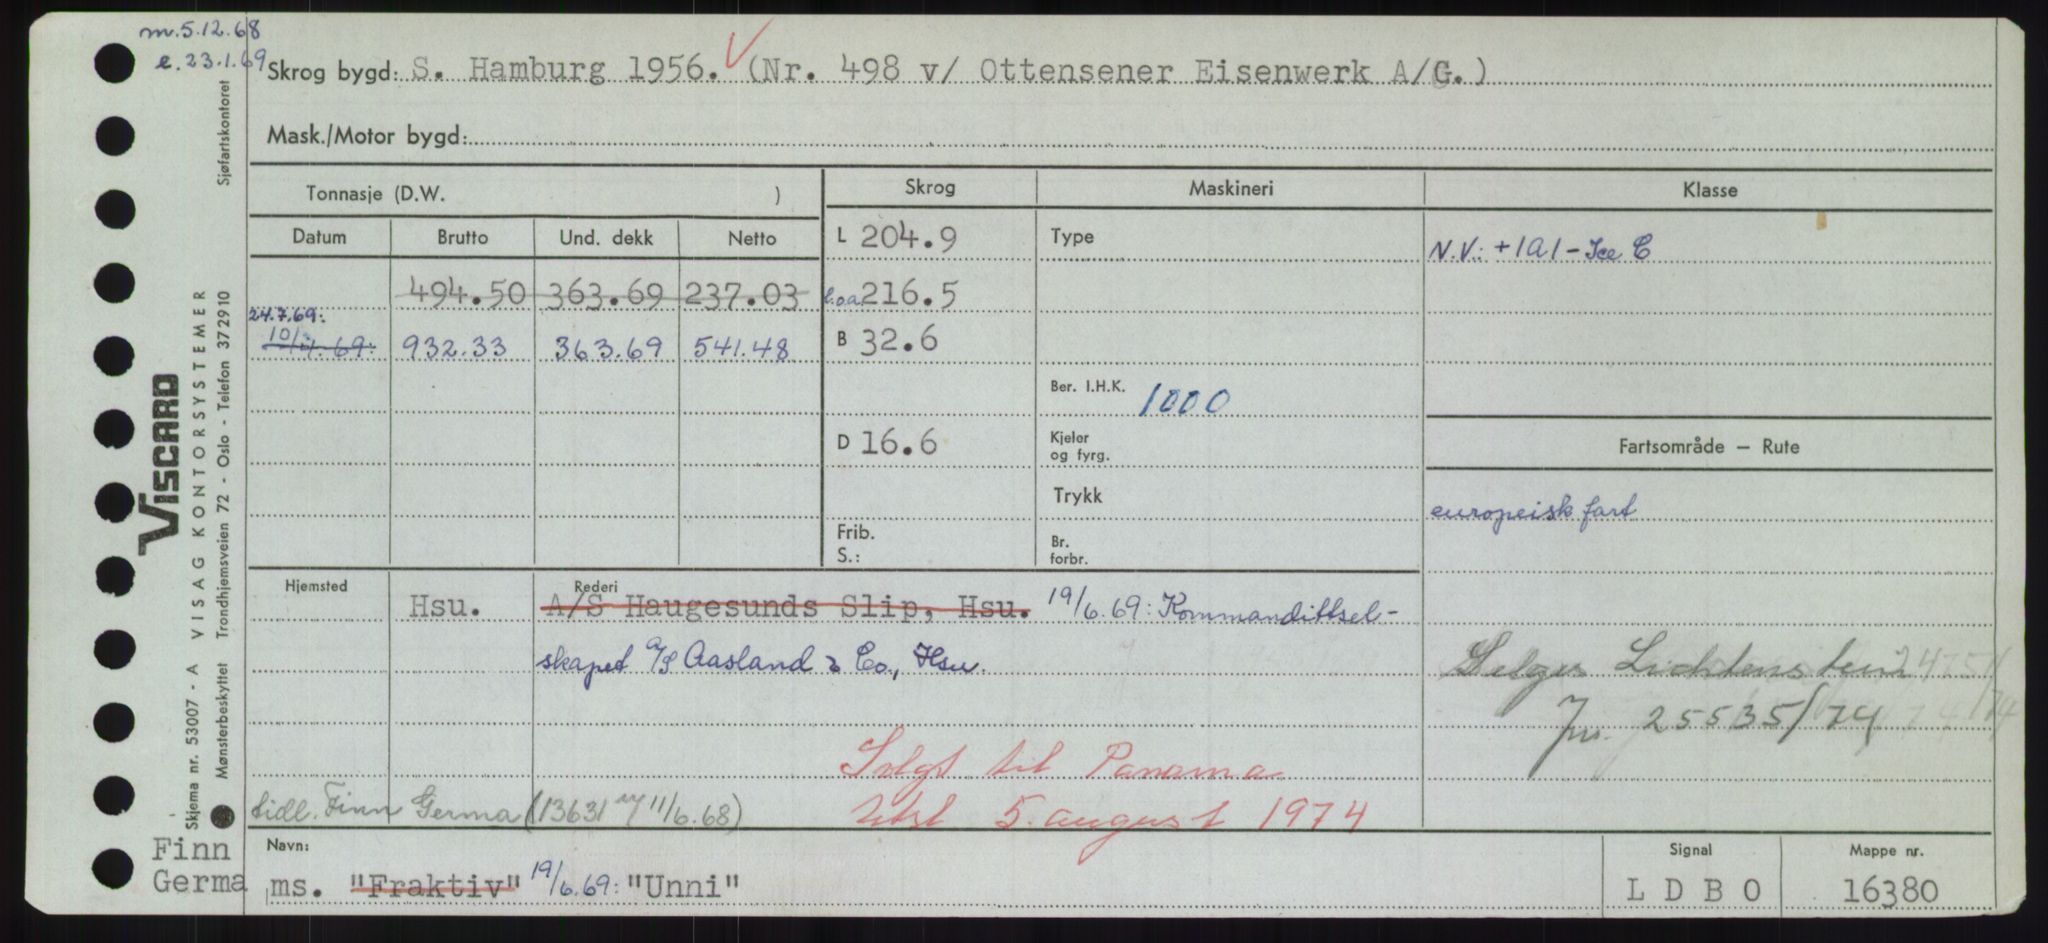 m. 5.12.68
e. 23.1.69
Skrog bygd: S. Hamburg 1956. (Nr. 498 v/ Ottensener Eisenwerk A/G.)
Mask./Motor bygd:
Tonnasje (D.W. )
Skrog
Maskineri
Klasse
Datum Brutto Und. dekk Netto
L 204.9
Type
N.V.: +1A1-Ice C
494.50 363.69 237.03
l.o.a. 216.5
24.7.69:
10/4.69: 932.33 363.69 541.48
B 32.6
Ber. I.H.K. 1000
D 16.6
Kjeler
og fyrg.
Fartsområde — Rute
Trykk
europeisk fart
Frib.
S.:
Br.
forbr.
Hjemsted
Rederi
Hsu. A/S Haugesunds Slip, Hsu. 19/6.69: Kommandittsel-
skapet A/S Aasland & Co., Hsu.
Selges Lichtenstein
Jnr. 25535/74
Solgt til Panama
tidl. Finn Germa (13631 11/6.68)
5. august 1974
Finn
Germa
Navn:
ms. "Fraktiv" 19/6.69: "Unni"
Signal
L D B O
Mappe nr.
16380
Viscard
Skjema nr. 53007 - A VISAG KONTORSYSTEMER
Mønsterbeskyttet Trondhjemsveien 72 - Oslo - Telefon 372910
Sjøfartskontoret